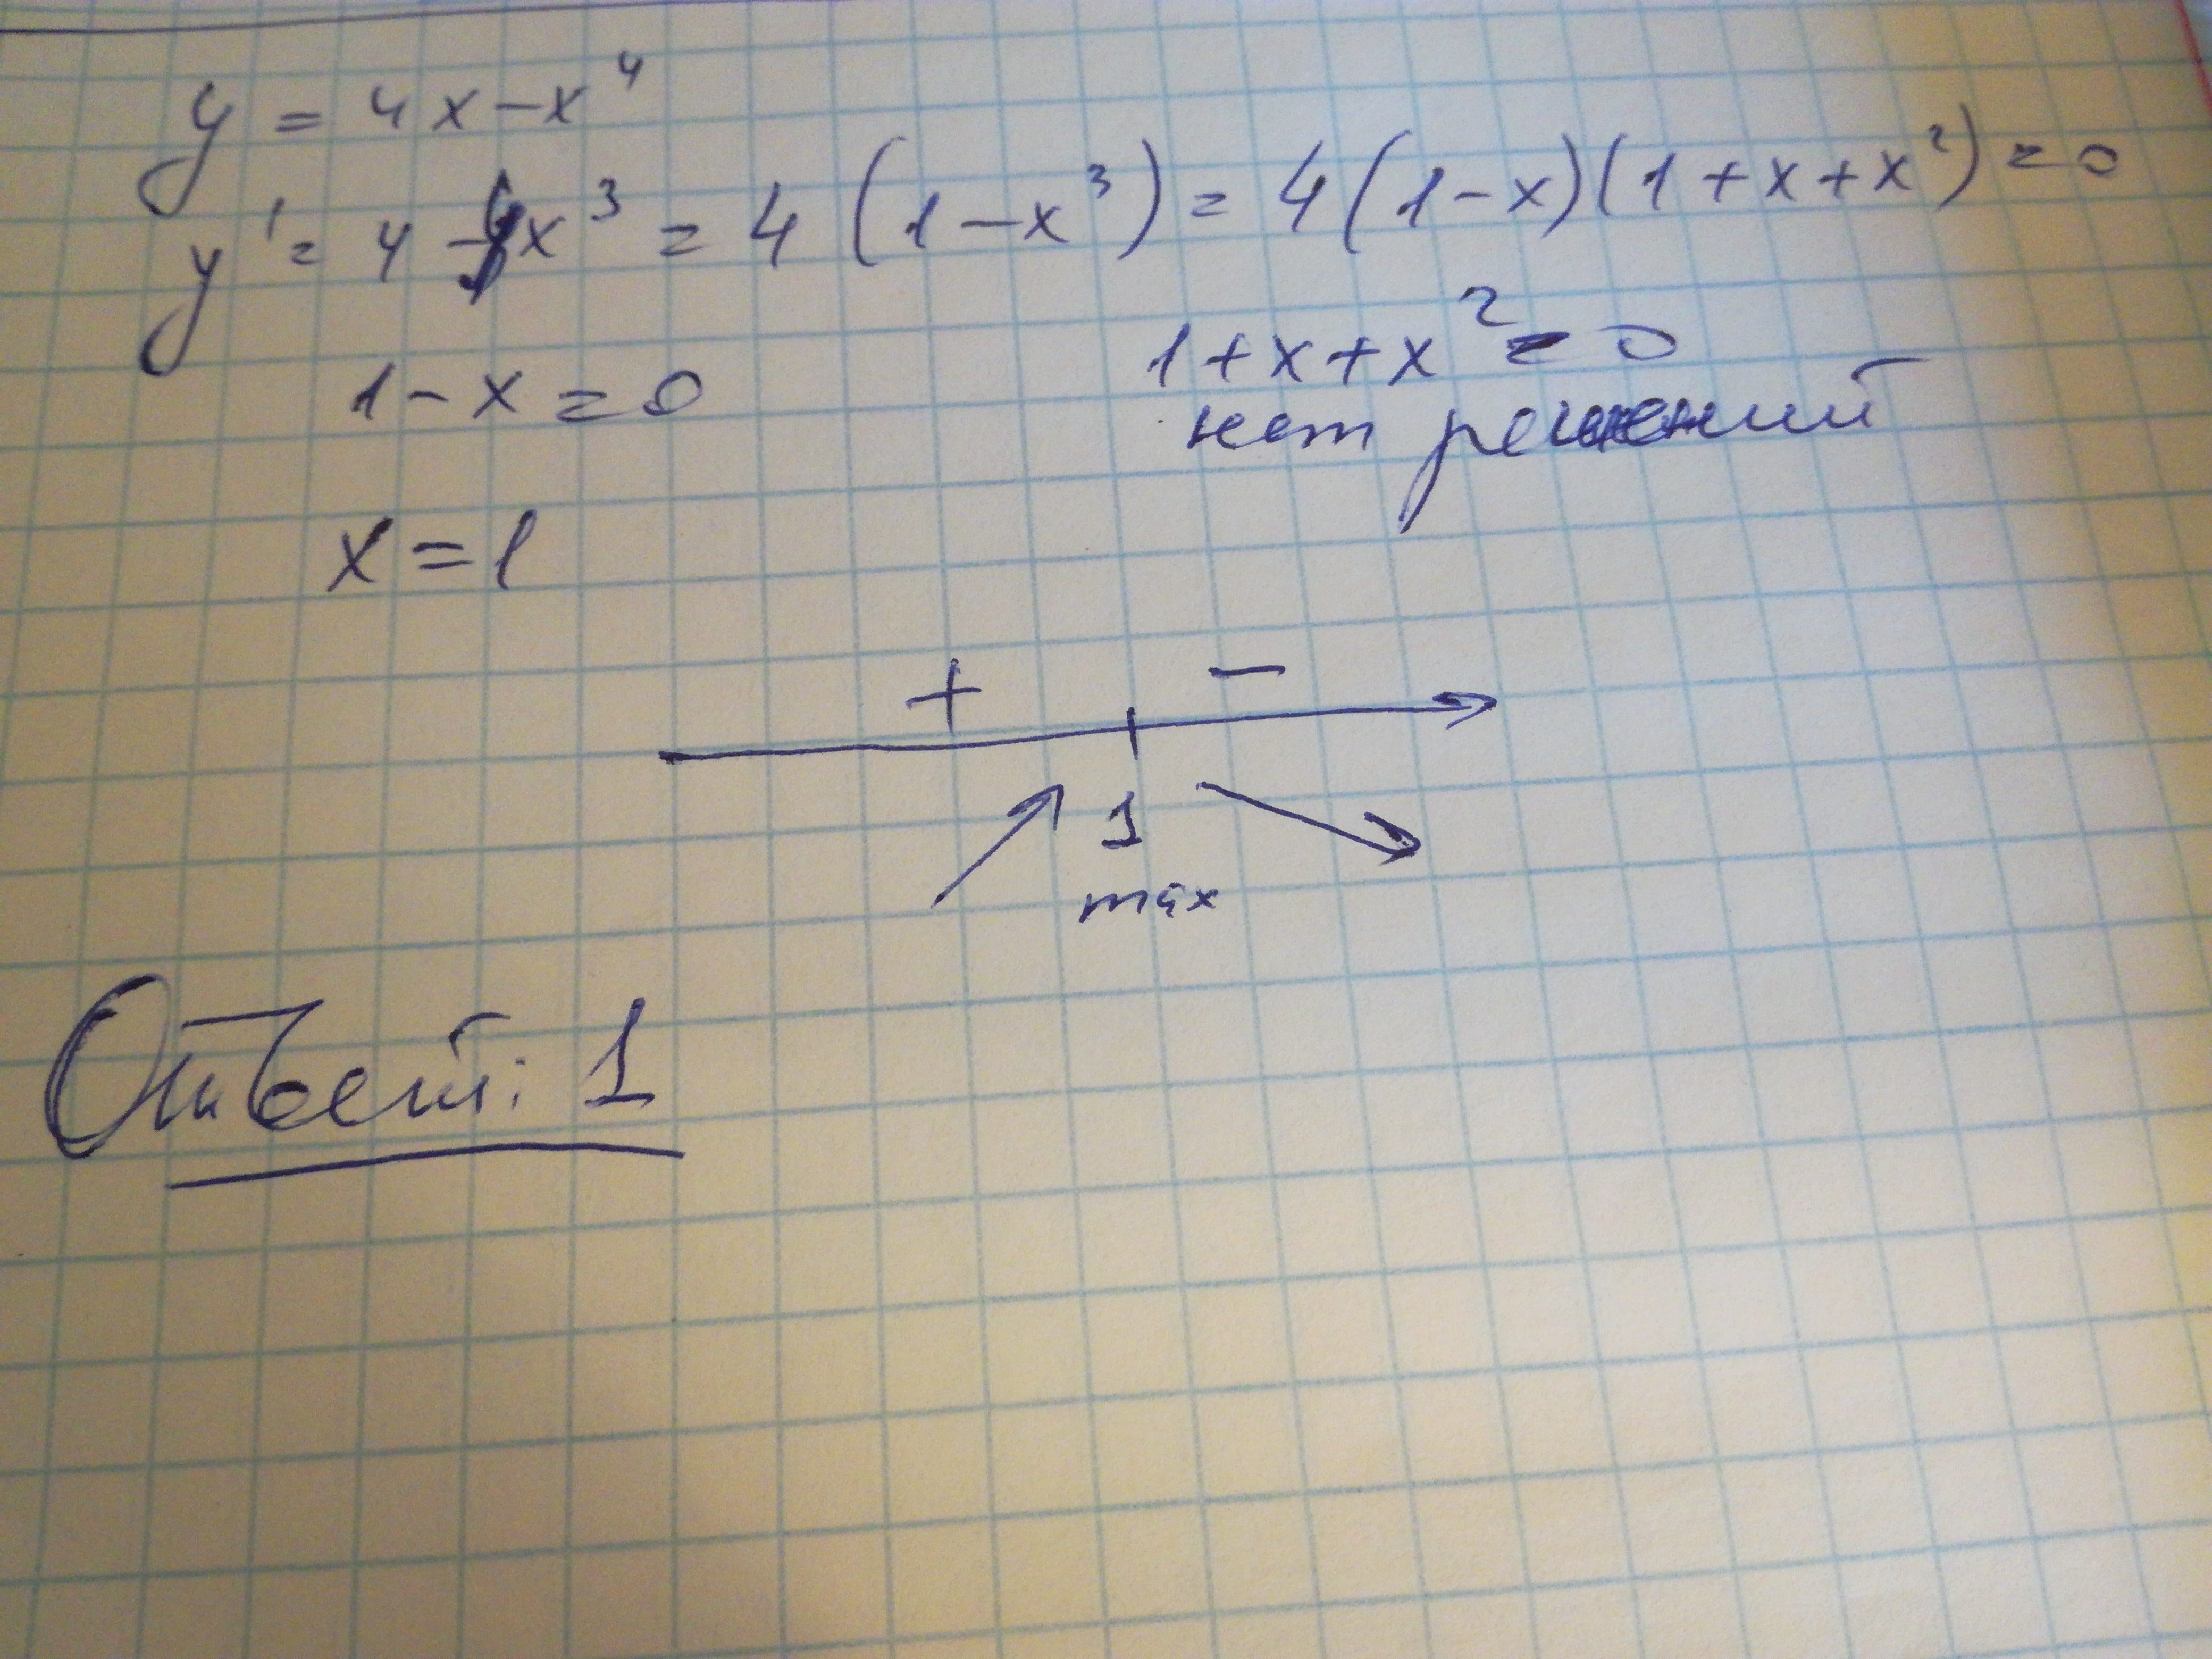 y = 4x-x⁴
y' = 4-4x³ = 4(1-x³) = 4(1-x)(1+x+x²) = 0
1-x=0
1+x+x²=0
нет решений
x=1
+ -
1
max
Ответ: 1